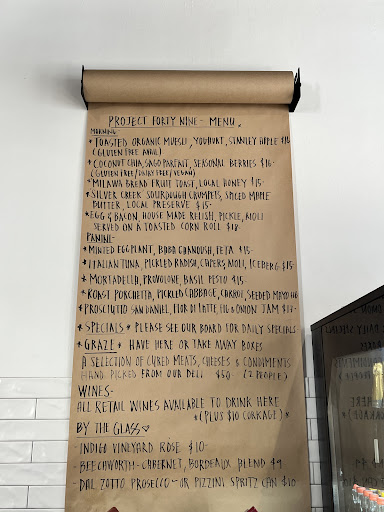 PROJECT FORTY NINE - MENU.
MORNING
* TOASTED ORGANIC MUESLI, YOUHURT, STANLEY APPLE $15
(GLUTEN FREE AVAIL)
* COCONUT CHIA, SAGO PARFAIT, SEASONAL BERRIES $16-
(GLUTEN FREE/DAIRY FREE/VEGAN)
* MILAWA BREAD FRUIT TOAST, LOCAL HONEY $15-
* SILVER CREEK SOURDOUGH CRUMPETS, SPICED APPLE
BUTTER, LOCAL PRESERVE $15-
* EGG & BACON, HOUSE MADE RELISH, PICKLE, AIOLI
SERVED ON A TOASTED CORN ROLL $18-
PANINI-
* MINTED EGGPLANT, BABA GHANOUSH, FETA $15-
* ITALIAN TUNA, PICKLED RADISH, CAPERS, AIOLI, ICEBERG $15-
* MORTADELLA, PROVOLONE, BASIL PESTO $15-
* ROAST PORCHETTA, PICKLED CABBAGE, CARROT, SEEDED MAYO
* PROSCIUTTO SAN DANIEL, FIOR DI LATTE, FIG & ONION JAM $17-
* SPECIALS * PLEASE SEE OUR BOARD FOR DAILY SPECIALS
* GRAZE * HAVE HERE OR TAKE AWAY BOXES
A SELECTION OF CURED MEATS, CHEESES & CONDIMENTS
HAND PICKED FROM OUR DELI $50- (2 PEOPLE)
WINES-
ALL RETAIL WINES AVAILABLE TO DRINK HERE
* (PLUS $10 CORKAGE) *
BY THE GLASS♡
- INDIGO VINEYARD ROSE $10-
- BEECHWORTH - CABERNET, BORDEAUX BLEND $9
- DAL ZOTTO PROSECCO - OR PIZZINI SPRITZ CAN $10